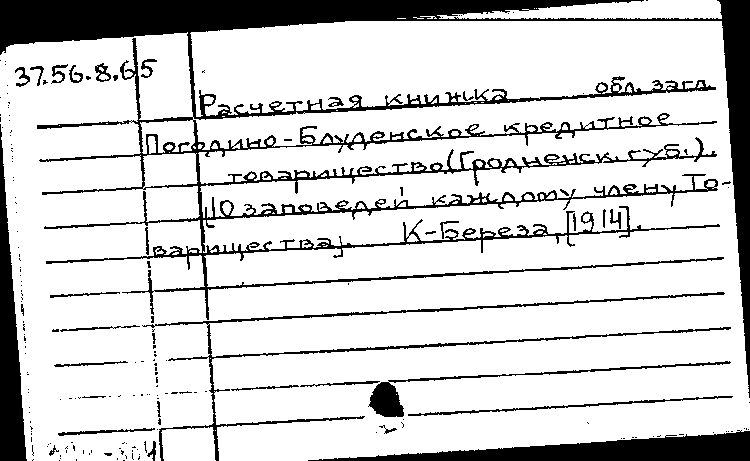 37.56.8.65
Расчетная книжка обл. загл.
Погодино-Блуденское кредитное
товарищество (Гродненск. губ.).
[10 заповедей каждому члену То-
варищества]. К-Береза, [1914].